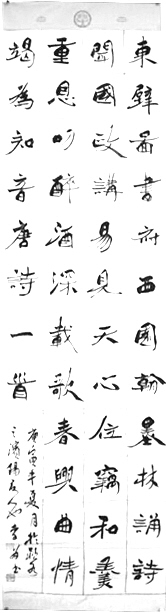 東壁圖書府西園翰墨林誦詩
聞國政講易見天心位竊和羹
重恩叨醉酒深載歌春興曲情
竭為知音唐詩一首
庚寅年夏月於